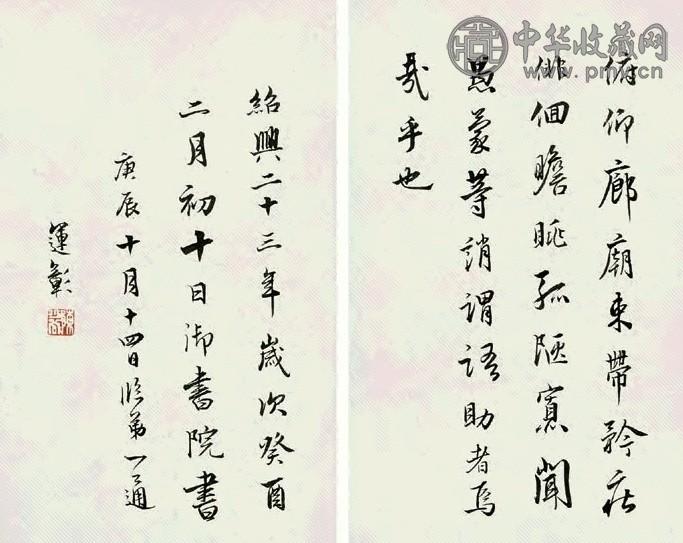 中华收藏网
俯仰廊廟束帶矜莊
徘徊瞻眺孤陋寡聞
愚蒙等誚謂語助者焉
哉乎也
紹興二十三年歲次癸酉
二月初十日御書院書
庚辰十月十四日臨第一通
運彰